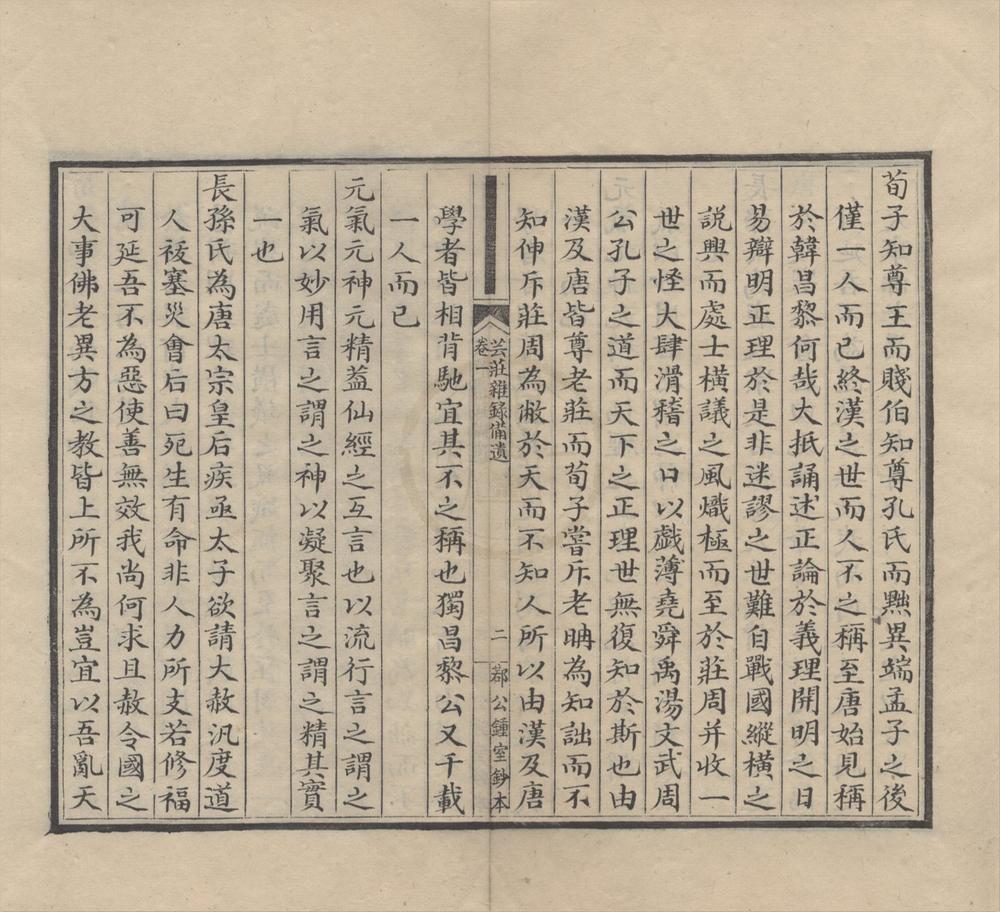 荀子知尊王而賤伯知尊孔氏而黜異端孟子之後
僅一人而已終漢之世而人不之稱至唐始見稱
於韓昌黎何哉大抵誦述正論於義理開明之日
易辯明正理於是非迷謬之世難自戰國縱橫之
說興而處士橫議之風熾極而至於莊周并收一
世之怪大肆滑稽之口以戲薄堯舜禹湯文武周
公孔子之道而天下之正理世無復知於斯也由
漢及唐皆尊老莊而荀子嘗斥老聃為知詘而不
知伸斥莊周為敝於天而不知人所以由漢及唐
芸莊雜錄備遺
卷一
二
鄭公鍾室鈔本
學者皆相背馳宜其不之稱也獨昌黎公又千載
一人而已
元氣元神元精葢仙經之互言也以流行言之謂之
氣以妙用言之謂之神以凝聚言之謂之精其實
一也
長孫氏為唐太宗皇后疾亟太子欲請大赦汎度道
人祓塞災會后曰死生有命非人力所支若修福
可延吾不為惡使善無效我尚何求且赦令國之
大事佛老異方之教皆上所不為豈宜以吾亂天